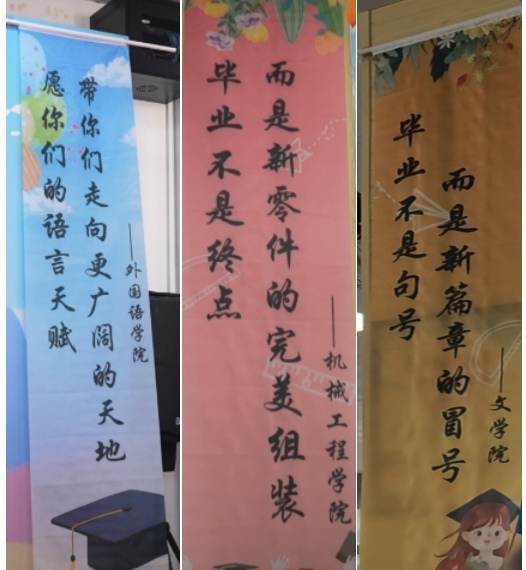 愿你们的语言天赋
带你们走向更广阔的天地
——外国语学院
毕业不是终点
而是新零件的完美组装
——机械工程学院
毕业不是句号
而是新篇章的冒号
——文学院